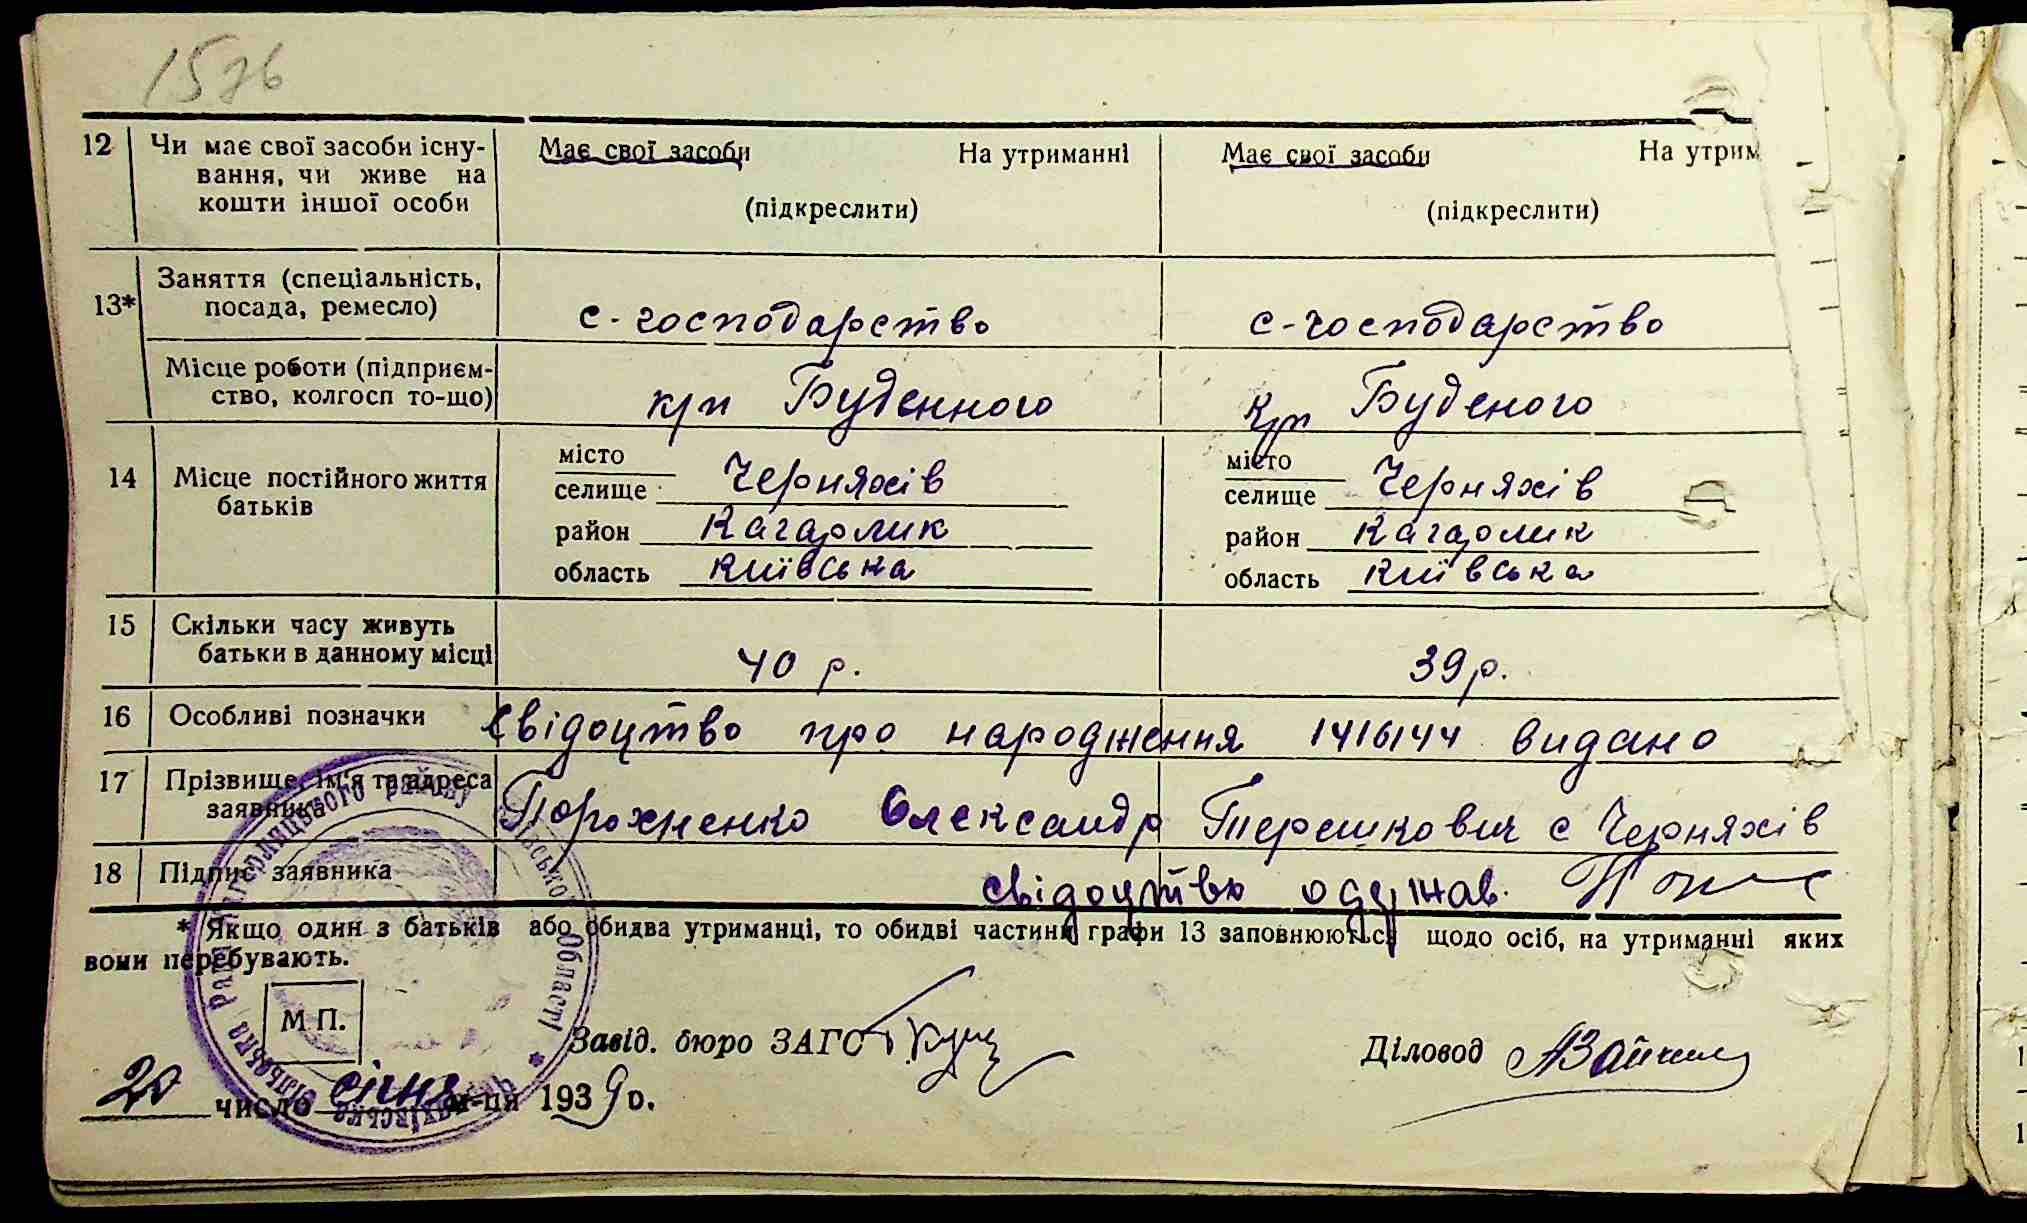 1576
12 Чи має свої засоби існу- Має свої засоби На утриманні Має свої засоби На утрим
вання, чи живе на
кошти іншої особи (підкреслити) (підкреслити)
13* Заняття (спеціальність,
посада, ремесло) с-господарство с-господарство
Місце роботи (підприєм-
ство, колгосп то-що) к/рп Буденного к/рп Буденого
14 Місце постійного життя
батьків
місто місто
селище Черняхів селище Черняхів
район Кагарлик район Кагарлик
область Київська область Київська
15 Скільки часу живуть
батьки в данному місці 40 р. 39 р.
16 Особливі позначки Свідоцтво про народження 1416144 видано
17 Прізвище, ім'я та адреса
заявника Порохненко Олександр Терешкович с Черняхів
18 Підпис заявника свідоцтво одержав.
* Якщо один з батьків або обидва утриманці, то обидві частини графи 13 заповнюються щодо осіб, на утриманні яких
вони перебувають.
М П.
Завід. бюро ЗАГС Діловод
20 число січня м-ця 1939 р.